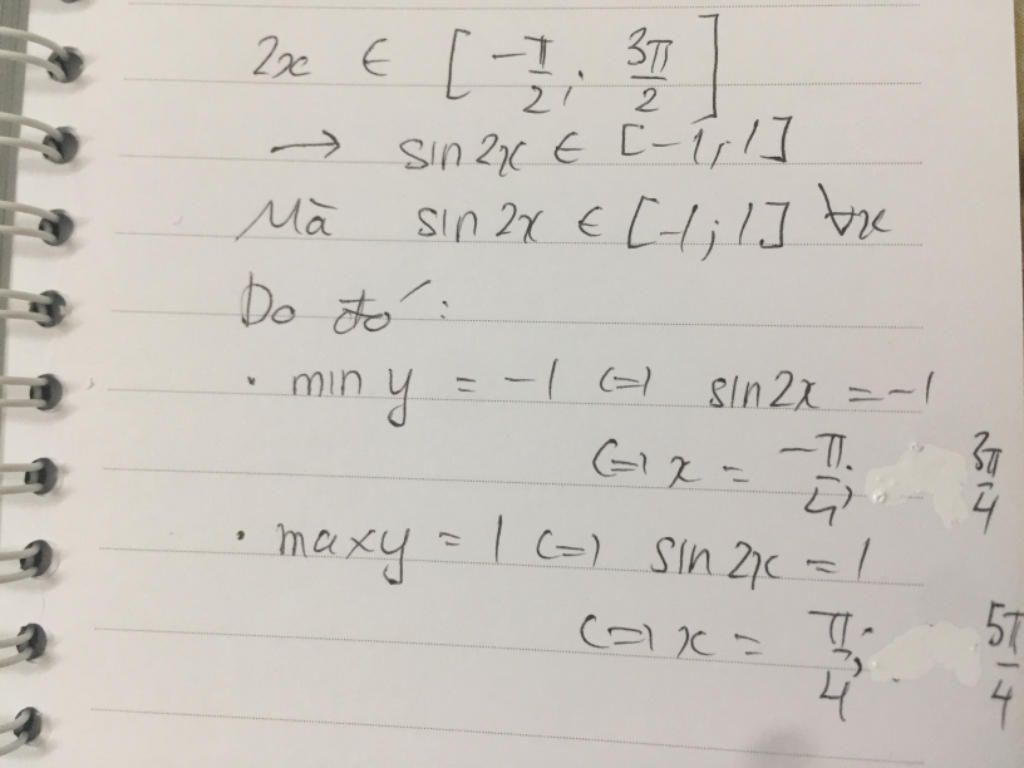 2x ∈ [-π/2; 3π/2]
→ sin2x ∈ [-1; 1]
Mà sin2x ∈ [-1; 1] ∀x
Do đó:
· min y = -1 <=> sin2x = -1
<=> x = -π/4; 3π/4
· maxy = 1 <=> sin2x = 1
<=> x = π/4; 5π/4